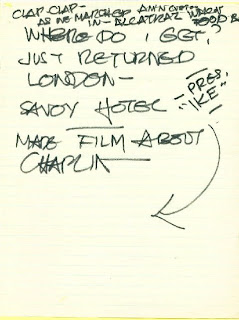 CLAP-CLAP-
AS WE MARCHED
IN - ALCATRAZ
WHERE DO I GET?
JUST RETURNED
LONDON-
SAVOY HOTEL
PRES.
"IKE"
MADE FILM ABOUT
CHAPLIN